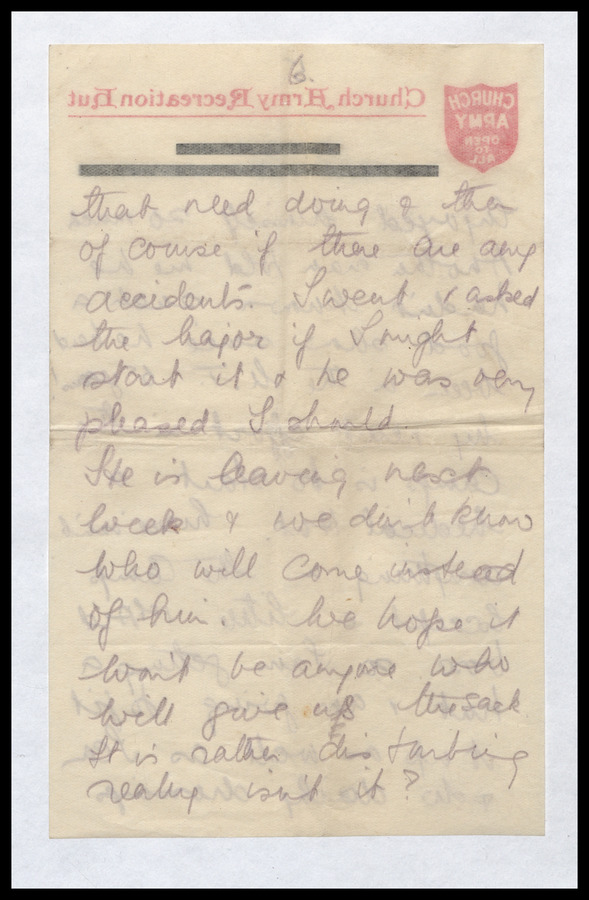 6.
Church Army Recreation Hut
CHURCH
ARMY
OPEN
TO
ALL
that need doing & then
of course if there are any
accidents. I went & asked
the Major if I might
start it & he was very
pleased I should.
He is leaving next
week & we don't know
who will come instead
of him. We hope it
won't be anyone who
will give us the sack
It is rather disturbing
really isn't it?